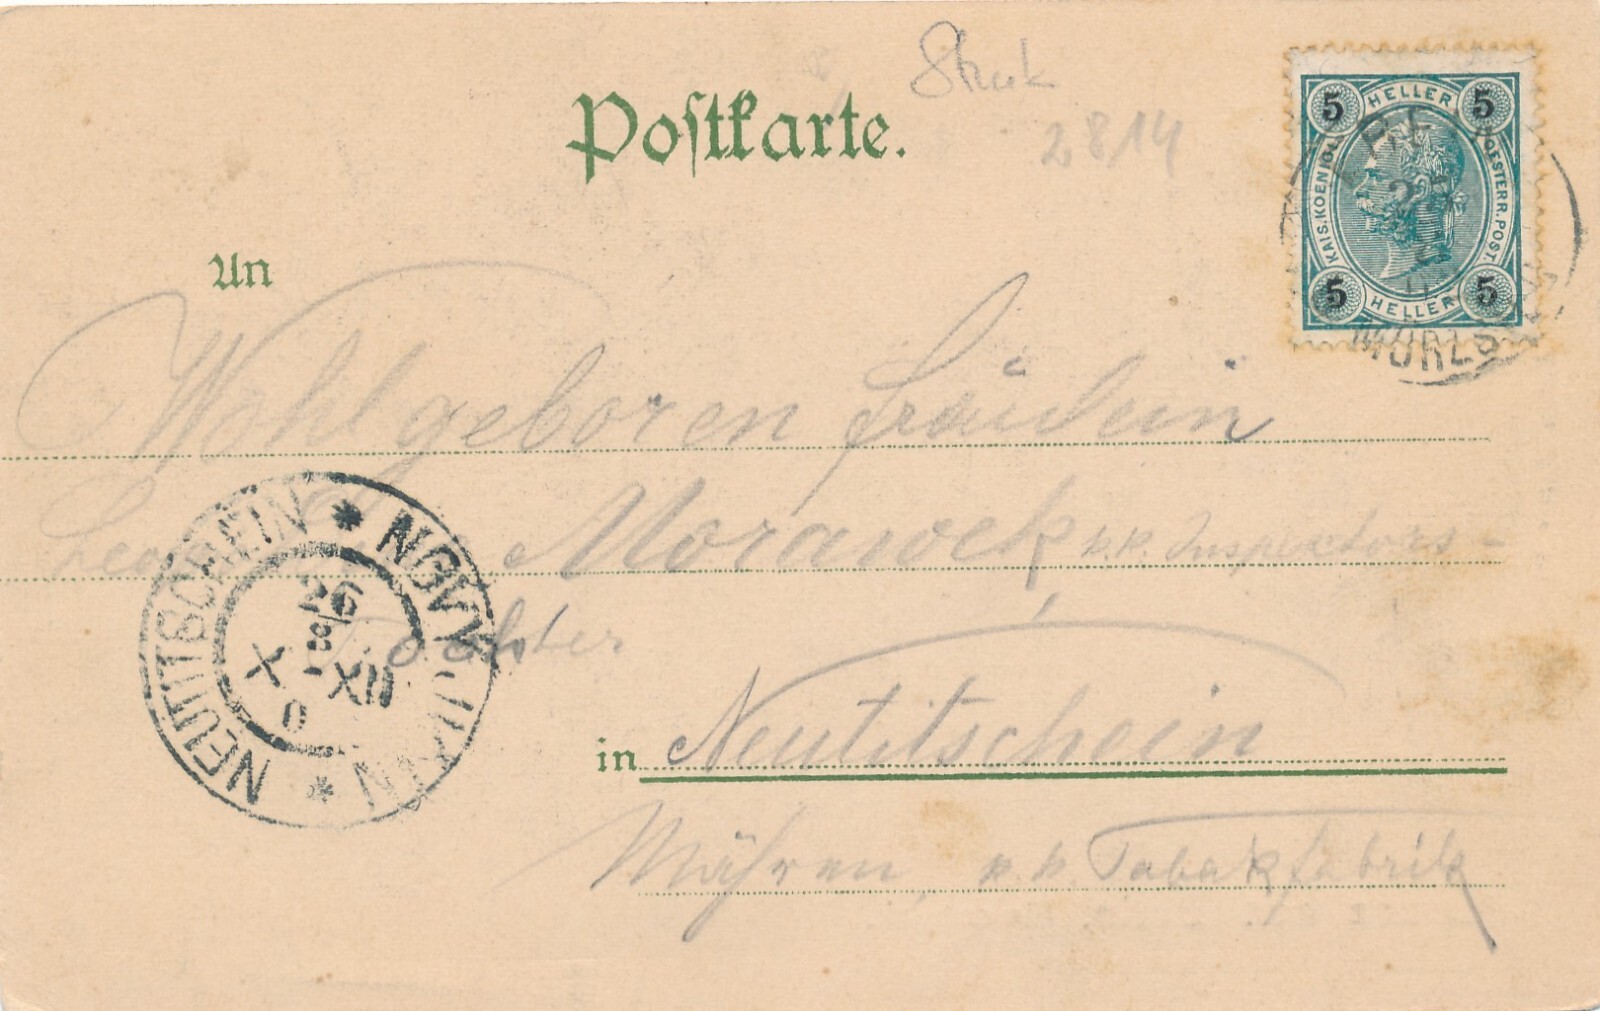 Postkarte.
2814
5 HELLER 5
KAIS. KOENIGL. OESTERR. POST.
5 HELLER 5
An
Wohlgeboren Fräulein
Morawek k.k. Inspektors-
Tochter
NEUTITSCHEIN * NOVÝ JIČÍN *
26
XII
in Neutitschein
Mähren, k k Tabakfabrik